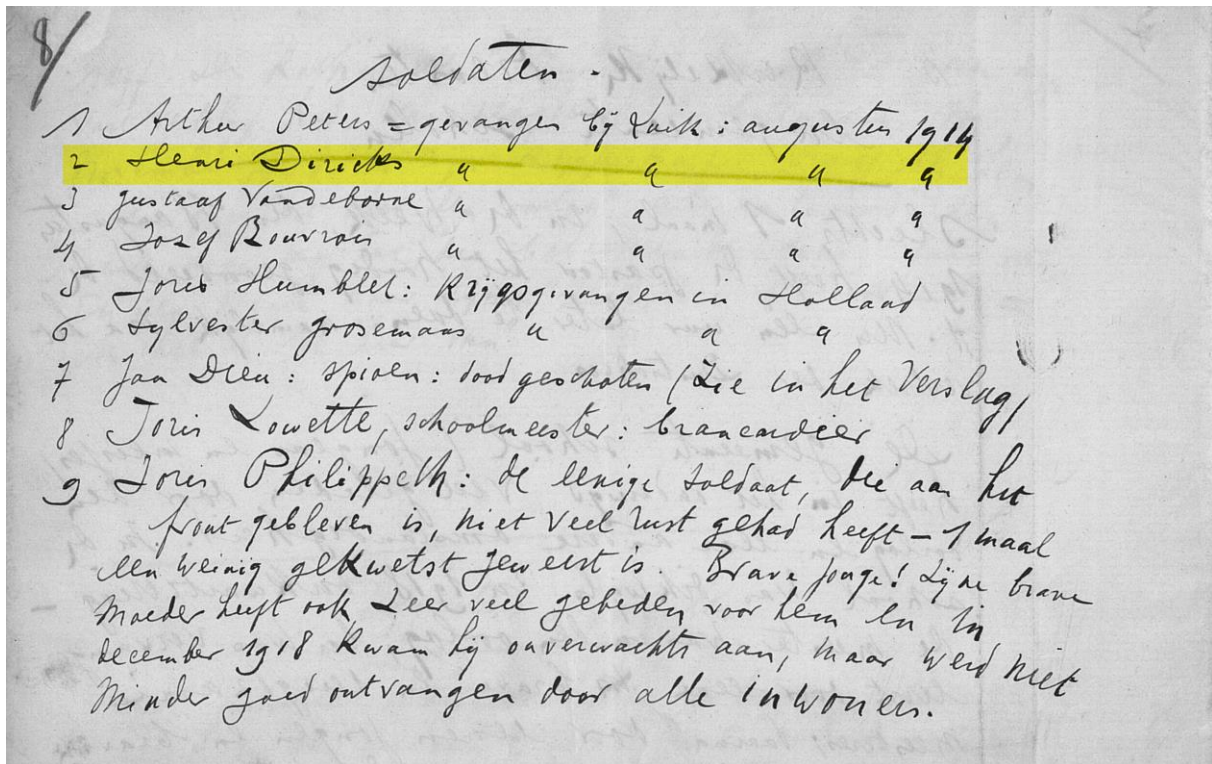 8/
soldaten.
1 Arthur Peters = gevangen bij Luik : augustus 1914
2 Henri Diricks " " " "
3 gustaaf Vandeborne " " " "
4 Jozef Bouvrois " " " "
5 Joris Humblet : Krijgsgevangen in Holland
6 Sylvester grosemans " " "
7 Jan Dieu : spioen : doodgeschoten (Zie in het Verslag)
8 Joris Lowette, schoolmeester : brancardier
9 Joris Philippeth : de eenige soldaat, die aan het
front gebleven is, niet veel rust gehad heeft – 1 maal
een weinig gekwetst geweest is. Brave jonge! Zijne brave
Moeder heeft ook Zeer veel gebeden voor hem en in
december 1918 Kwam hij onverwachts aan, maar werd niet
Minder goed ontvangen door alle inwoners.